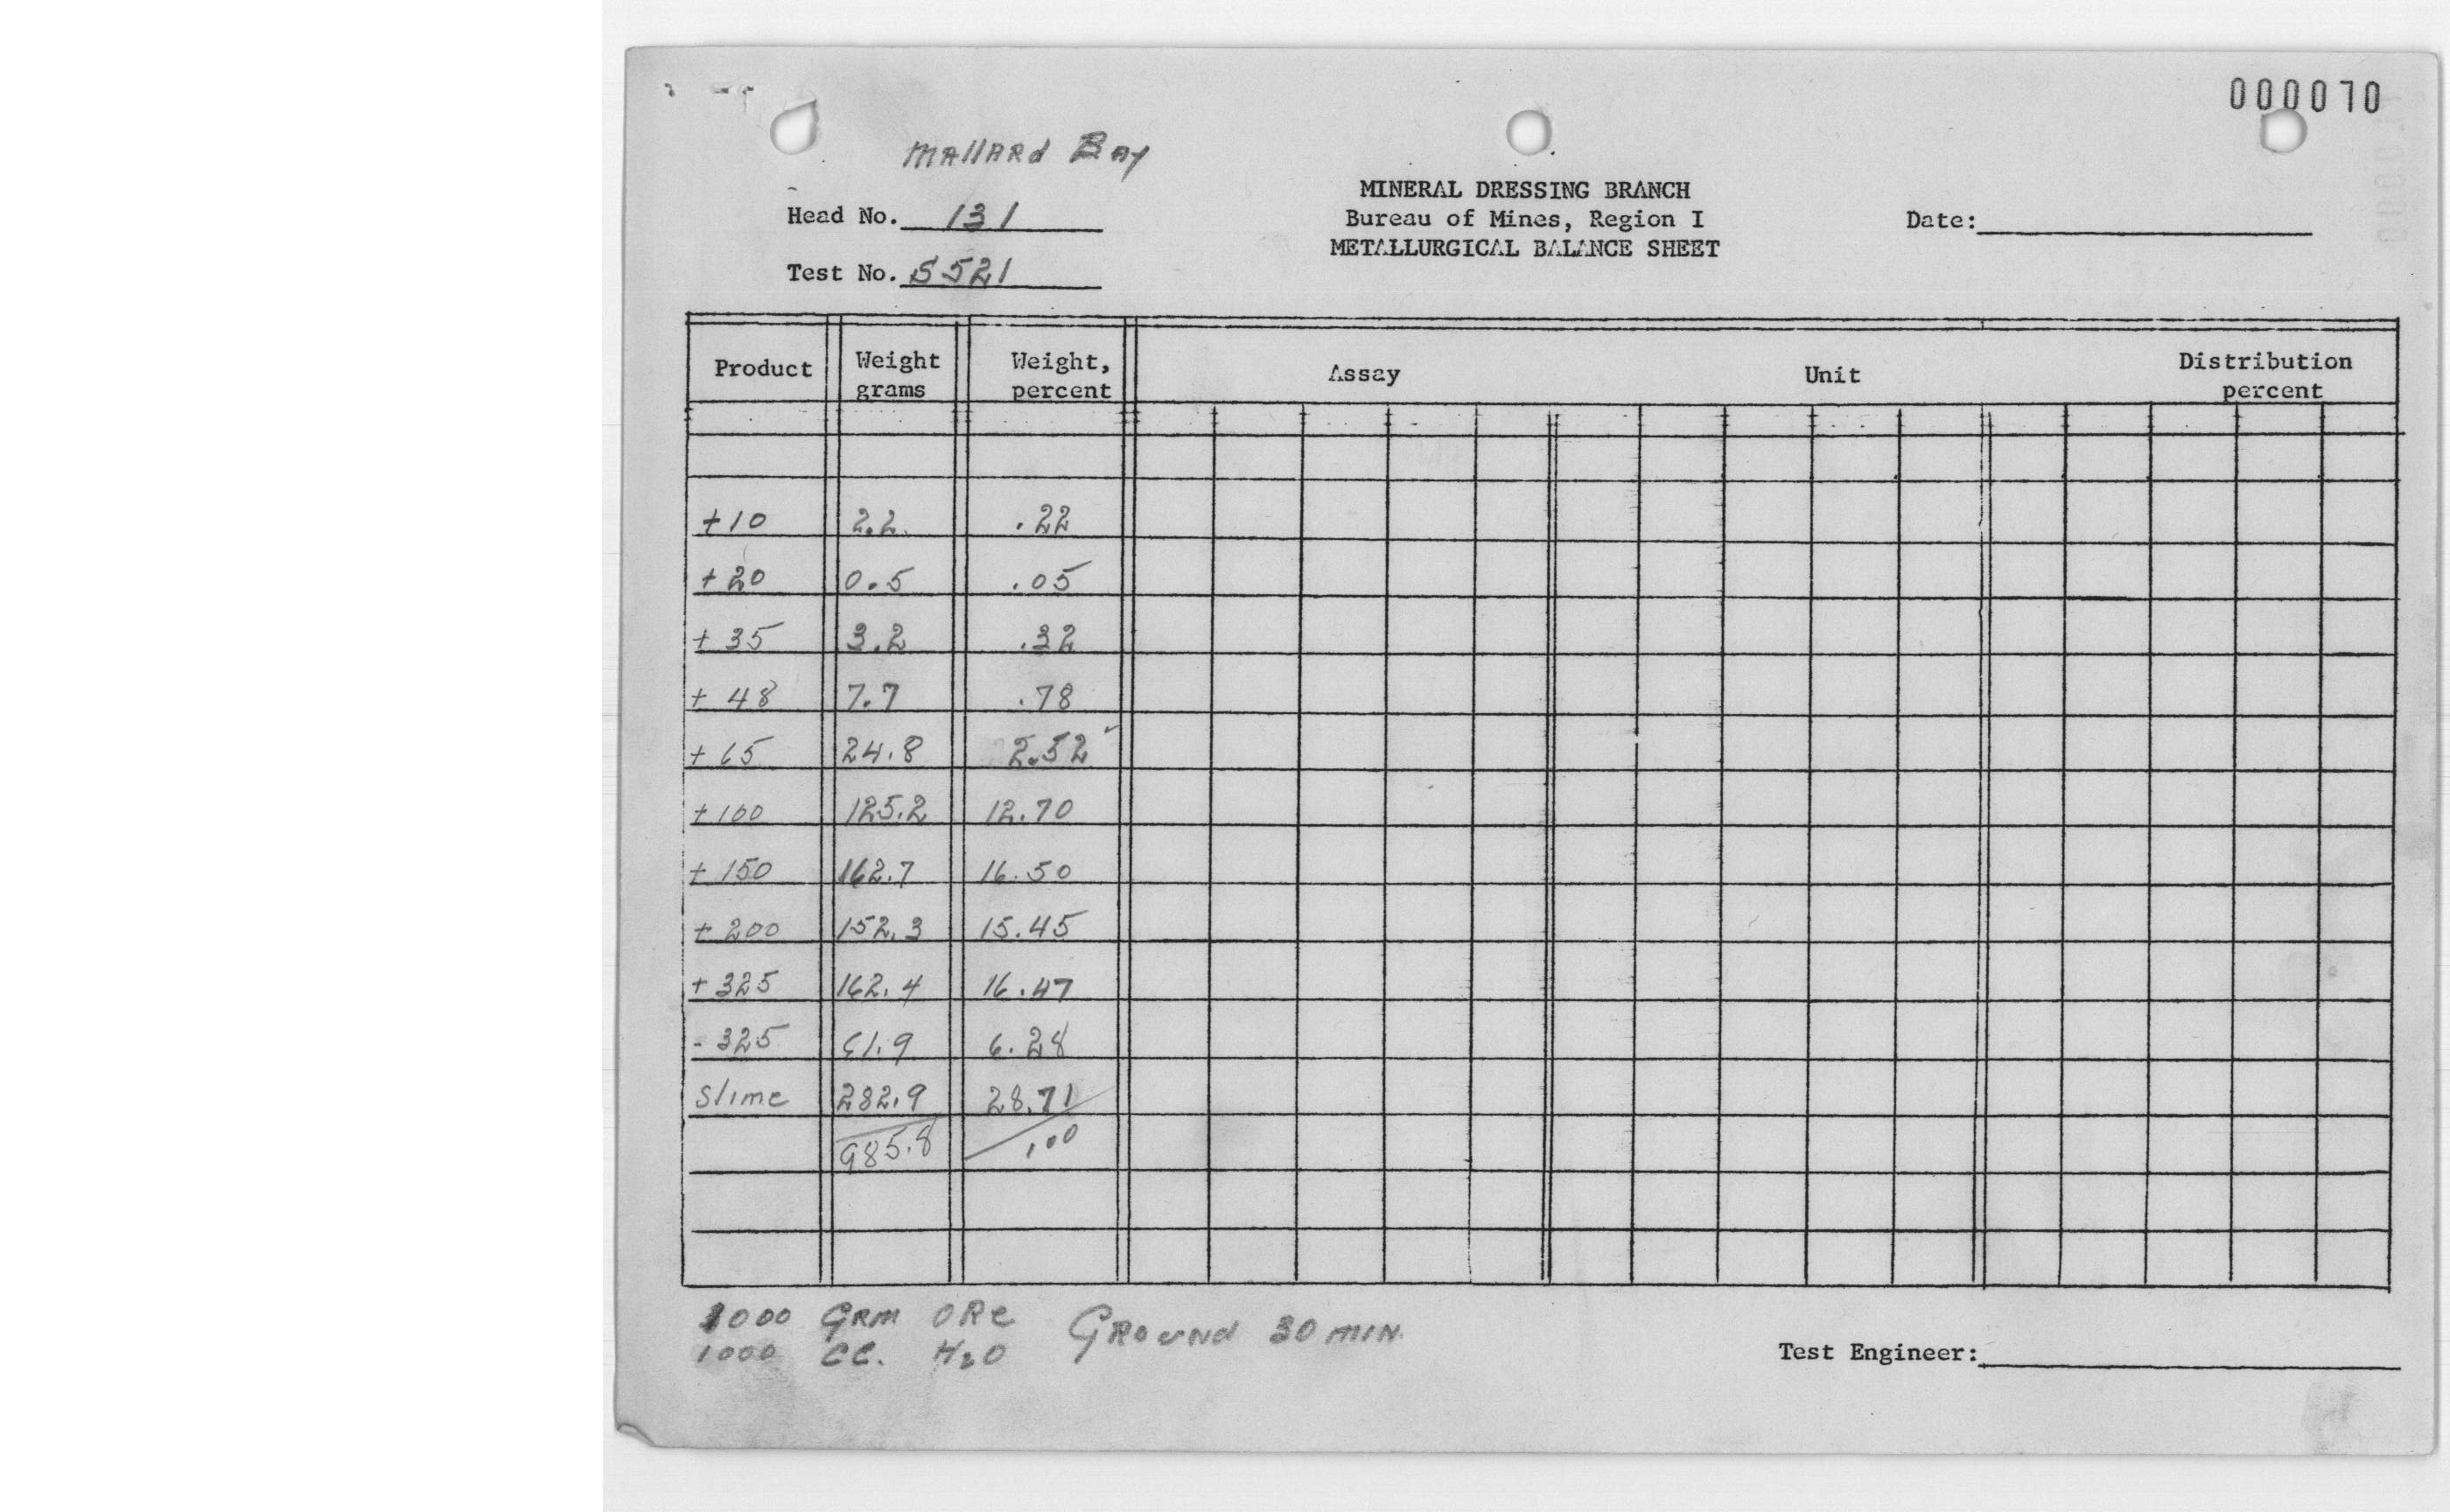 000070
Mallard Bay
MINERAL DRESSING BRANCH
Head No. 131
Bureau of Mines, Region I
Date:
METALLURGICAL BALANCE SHEET
Test No. S521
Product Weight grams Weight, percent Assay Unit Distribution percent
+10 2.2 .22
+20 0.5 .05
+35 3.2 .32
+48 7.7 .78
+65 24.8 2.52
+100 125.2 12.70
+150 162.7 16.50
+200 152.3 15.45
+325 162.4 16.47
-325 61.9 6.28
Slime 282.9 28.71
985.8 .00
1000 GRM ORE Ground 30 MIN.
1000 CC. H2O
Test Engineer: